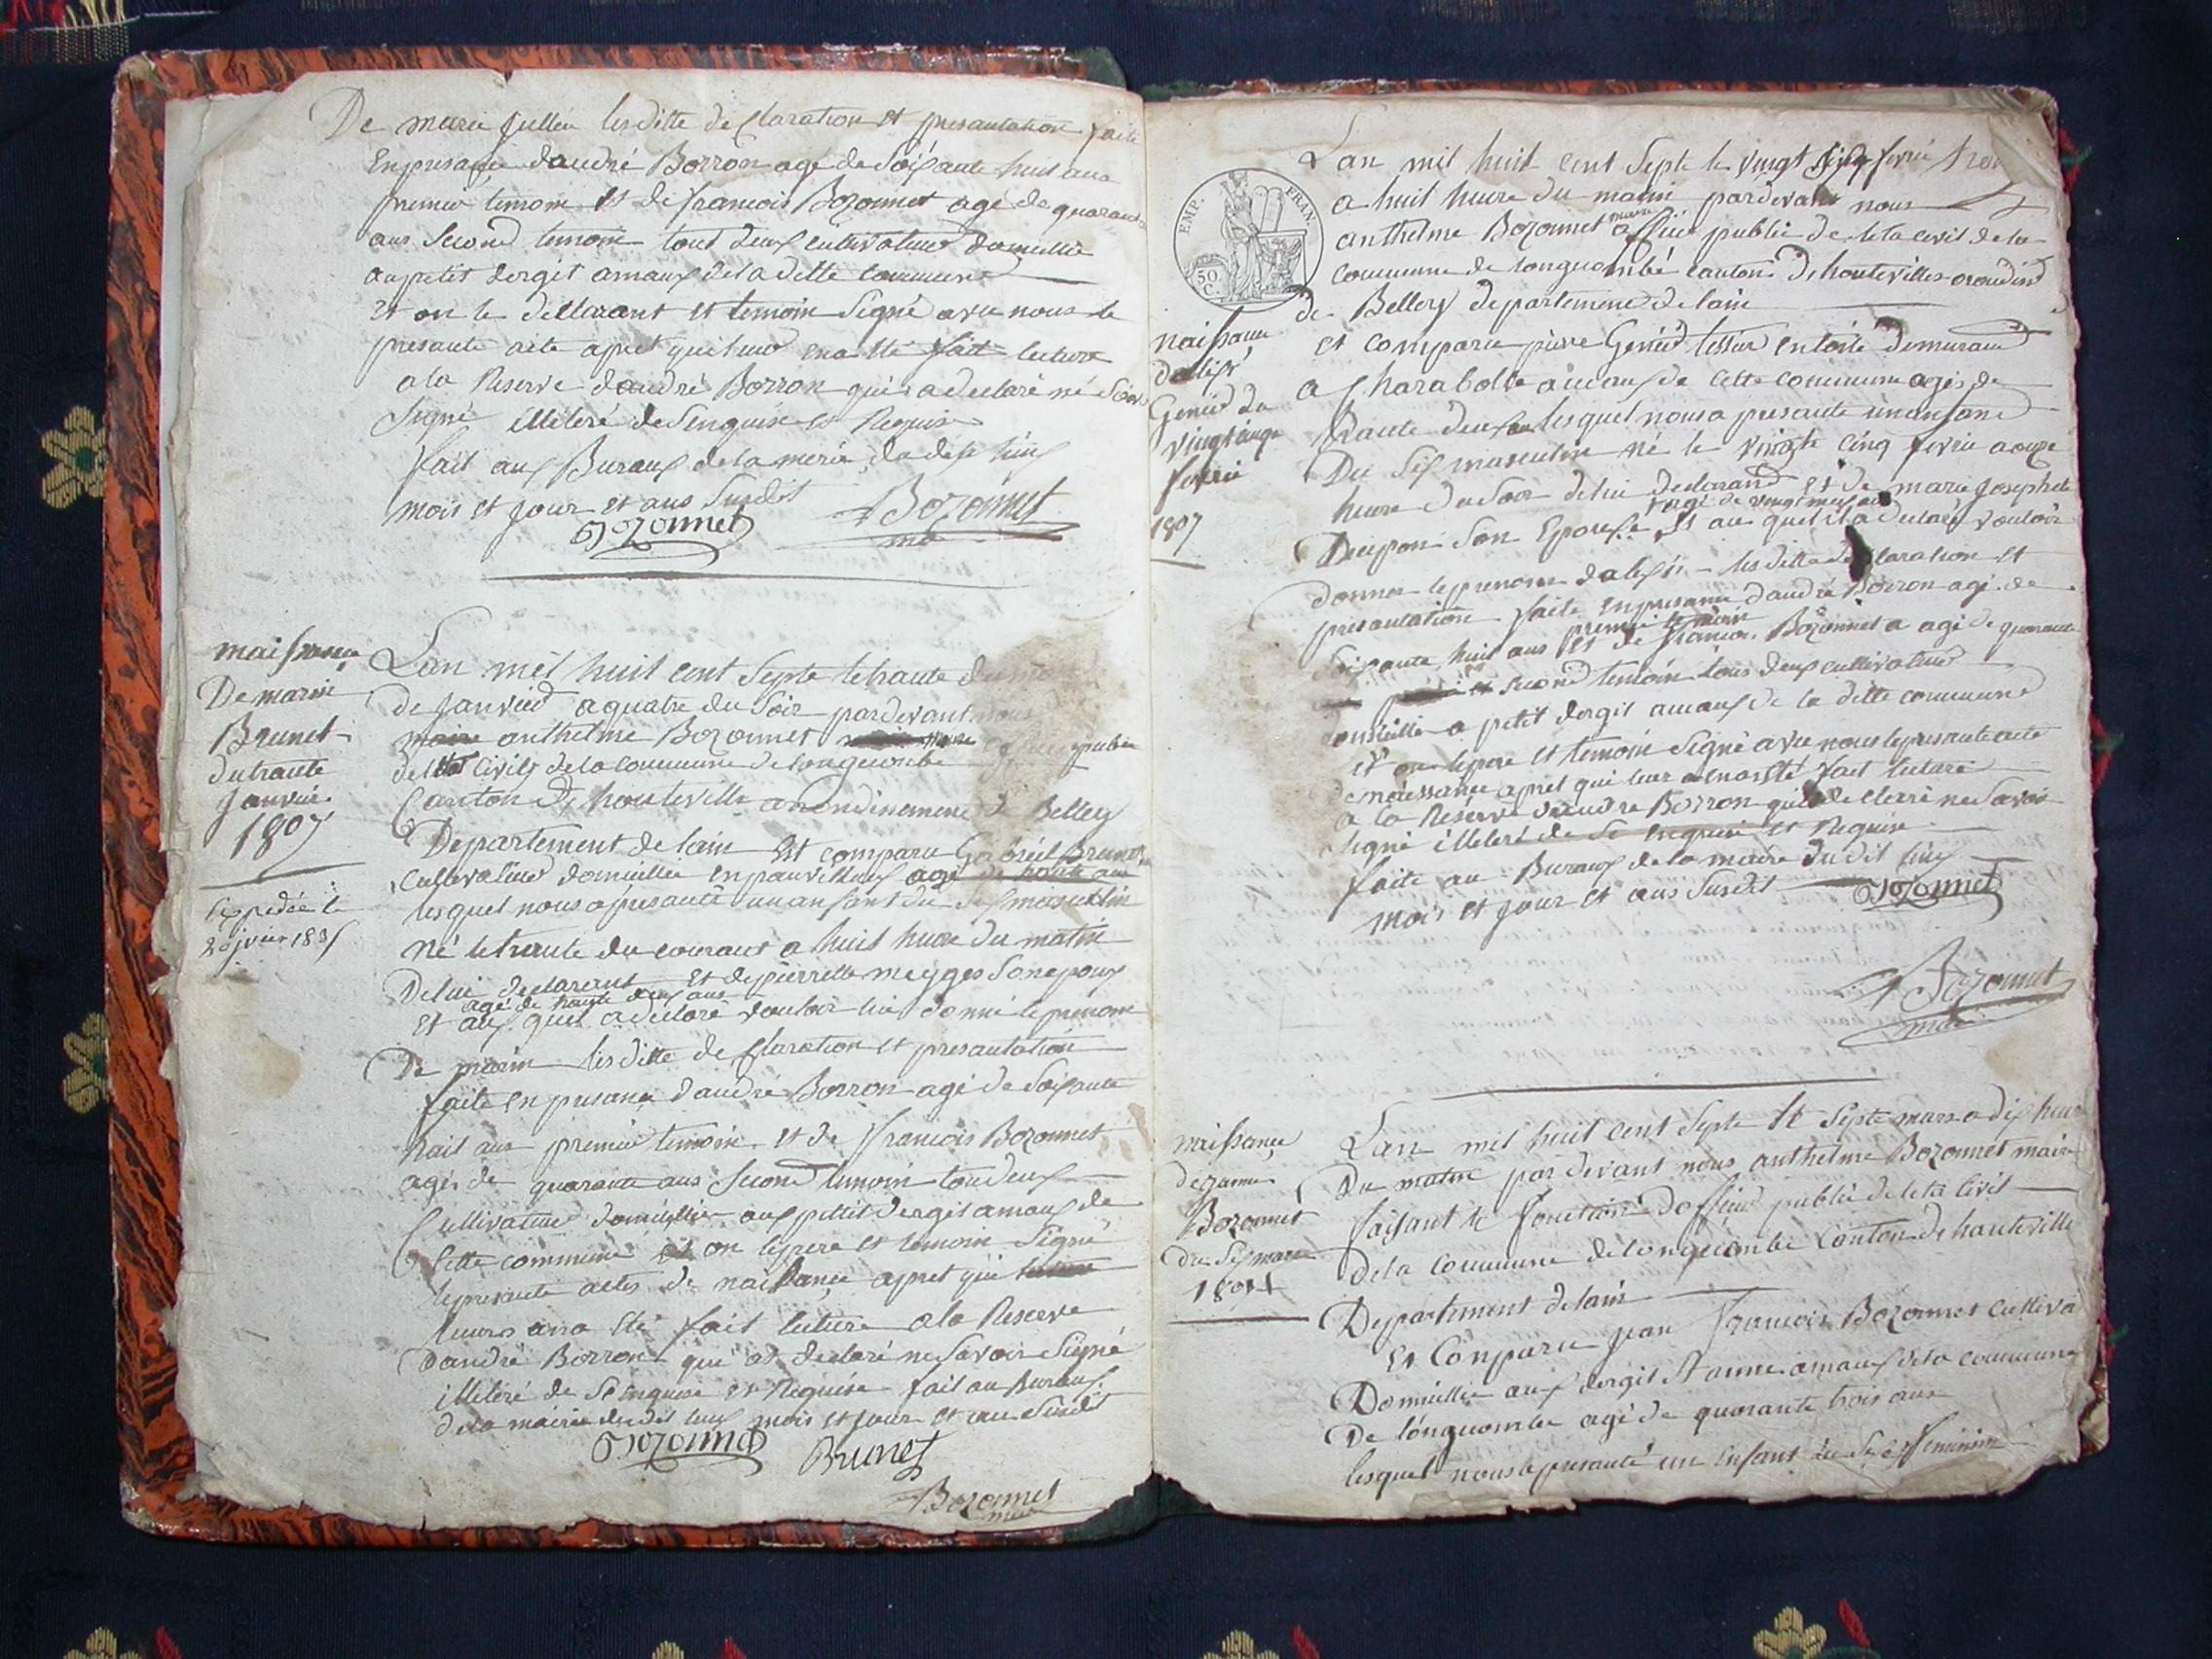 De marie Jullien lesditte declaration et presantation faite
En presance d'andré Borron agé de Soisante huit ans
premier temoin et de francois Bozonnet agé de quarante
ans Second temoin tout deux cultivateur domicillié
au petit dergit amaux de la ditte commune
Et on le declarant et temoin Signé avec nous le
presante acte apret quil leur ena Eté fait lecture
a la Reserve dandré Borron qui a declaré né Savoir
Signé illiteré de Senquise et Requise
fait aux Buraux de la merie dudit lieux
mois et jour et ans Susdit
Bozonnet Bozonnet
naissance
De marin
Brunet
du trante
Janvier
1807
Expediée le
20 jvier 1831
Lan mil huit cent Septe le trante du mois
de Janvier a quatre du Soir pardevant nous
maire anthelme Bozonnet maire officier publie
de letat Civils de la commune de longecombe
Canton de hauteville arrondinement de Belley
Departement de lain Est comparu Gabriel Brunet
Cultivateur domicillié en pauvillieux agé de trante ans
lesquel nous a presanté un anfant du Sex masculin
Né le trante du courant a huit heure du matin
De lui declarant et de pierrette meyges Son epoux
agé de trante deux ans
Et aux quel a declaré vouloir lui donné le prenom
De marin lesditte declaration et presantation
faite en presance dandré Borron agé de Soisante
huit ans premier temoin et de francois Bozonnet
agé de quarante ans Second temoin toudeux
Cultivateur domicillié aux petit dergit amaux de
Cette commune et on le pere et temoin Signé
le presante actes de naissance apret qui
leurs ana Eté fait lecture a la Reserve
Dandré Borron qui a declaré ne Savoir Signé
illiteré de Senquise et Requise fait au Buraux
de la mairie dudit lieux mois et jour et an Susdit
Bozonnet Brunet
Bozonnet
EMP. FRAN.
50 C.
naissance
dalexi
Genied du
vingt cinq
fevrie
1807
Lan mil huit cent Septe le vingt fevrie
a huit heure du matin pardevant nous
anthelme Bozonnet maire officier publie de letat civil de la
commune de longuecombe canton de hauteville
de Belley departement de lain
et comparu pierre Genied tessier en toile demurant
a Charabotte amaux de cette commune agé de
trante deux ans lesquel nous a presanté un anfant
Du Sex masculin né le vingte cinq fevrie a onze
heure du Soir de lui declarant et de marie josephete
agé de vingt neuf ans
Son Epouse et au quel il a declaré vouloir
donner le prenom dalexis lesditte declaration et
presantation faite en presance dandré Borron agé de
premie temoin
Soisante huit ans et de francois Bozonnet agé de quarante
et second temoin tous deux cultivateur
domicillié a petit dergit amaux de la ditte commune
et on le pere et temoin Signé avec nous le presante acte
de naissance apret qui leur enas Eté fait lecture
a la Réserve dandré Borron qui a declaré ne Savoir
Signé illiteré de Se enquise et Requise
faite au Buraux de la mairie du dit lieux
mois et jour et ans Susdit Bozonnet
Bozonnet
naissance
dejanne
Bozonnet
du Sep mars
Lan mil huit cent Septe le Septe mars a dix heure
Du matin par devant nous anthelme Bozonnet maire
faisant le fonction dofficier publie de letat Civil
De la commune de longuecombe Canton de hauteville
Departement de lain
Et Conparu jean francois Bozonnet cultiva
Domicillié aux dergit St anne amaux de la commune
De longuombe agé de quarante trois ans
lesquel nous a presanté un enfant du Sexe feminin